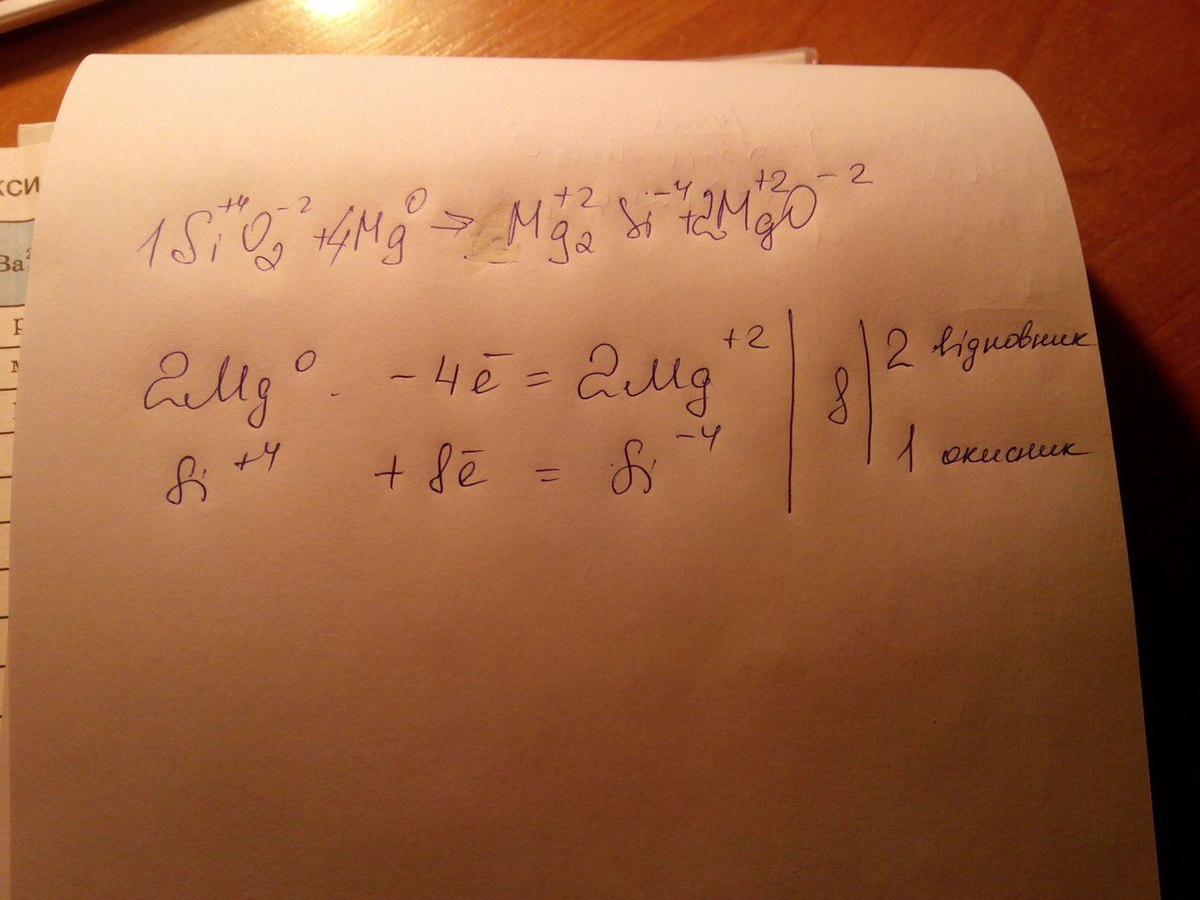 кси
Ba²
1Si⁺⁴O₂⁻² + 4Mg⁰ → Mg₂⁺²Si⁻⁴ + 2Mg⁺²O⁻²
2Mg⁰ - 4ē = 2Mg⁺² | 8 | 2 відновник
Si⁺⁴ + 8ē = Si⁻⁴ | | 1 окисник